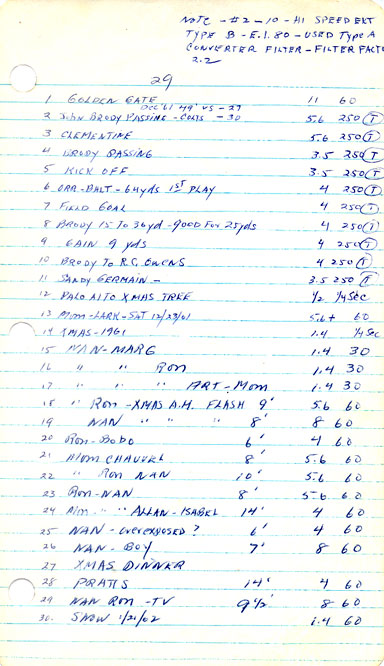 NOTE - #2-10 - HI SPEED EKT
TYPE B - E.I. 80 - USED TYPE A
CONVERTER FILTER - FILTER FACTOR
2.2
29
1 GOLDEN GATE 11 60
DEC 61 49' VS - 29
2 John BRODY PASSING - COLTS - 30 5.6 250 (T)
3 CLEMENTINE 5.6 250 (T)
4 BRODY PASSING 3.5 250 (T)
5 KICK OFF 3.5 250 (T)
6 ORR - BALT - 64 yds 1ST PLAY 4 250 (T)
7 FIELD GOAL 4 250 (T)
8 BRODY 15 TO 36 yd - GOOD FOR 25 yds 4 250 (T)
9 GAIN 9 yds 4 250 (T)
10 BRODY TO R.C. OWENS 4 250 (T)
11 SANDY GERMAIN - 3.5 250 (T)
12 PALO ALTO XMAS TREE 1/2 1/4 SEC
13 Mom - LARK - SAT 12/23/61 5.6+ 60
14 XMAS - 1961 1.4 1/4 SEC
15 NAN - MARG 1.4 30
16 " " Ron 1.4 30
17 " " " ART - Mom 1.4 30
18 " Ron - XMAS A.M. FLASH 9' 5.6 60
19 NAN " " " 8' 8 60
20 Ron - BOBO 6' 4 60
21 Mom CHAUVEL 8' 5.6 60
22 " Ron NAN 10' 5.6 60
23 Ron - NAN 8' 5-6 60
24 " " ALLAN - ISABEL 14' 4 60
25 NAN - OVEREXPOSED? 6' 4 60
26 NAN - BOY 7' 8 60
27 XMAS DINNER
28 PRATTS 14' 4 60
29 NAN Ron - TV 9 1/2' 8 60
30. SNOW 1/21/62 1.4 60